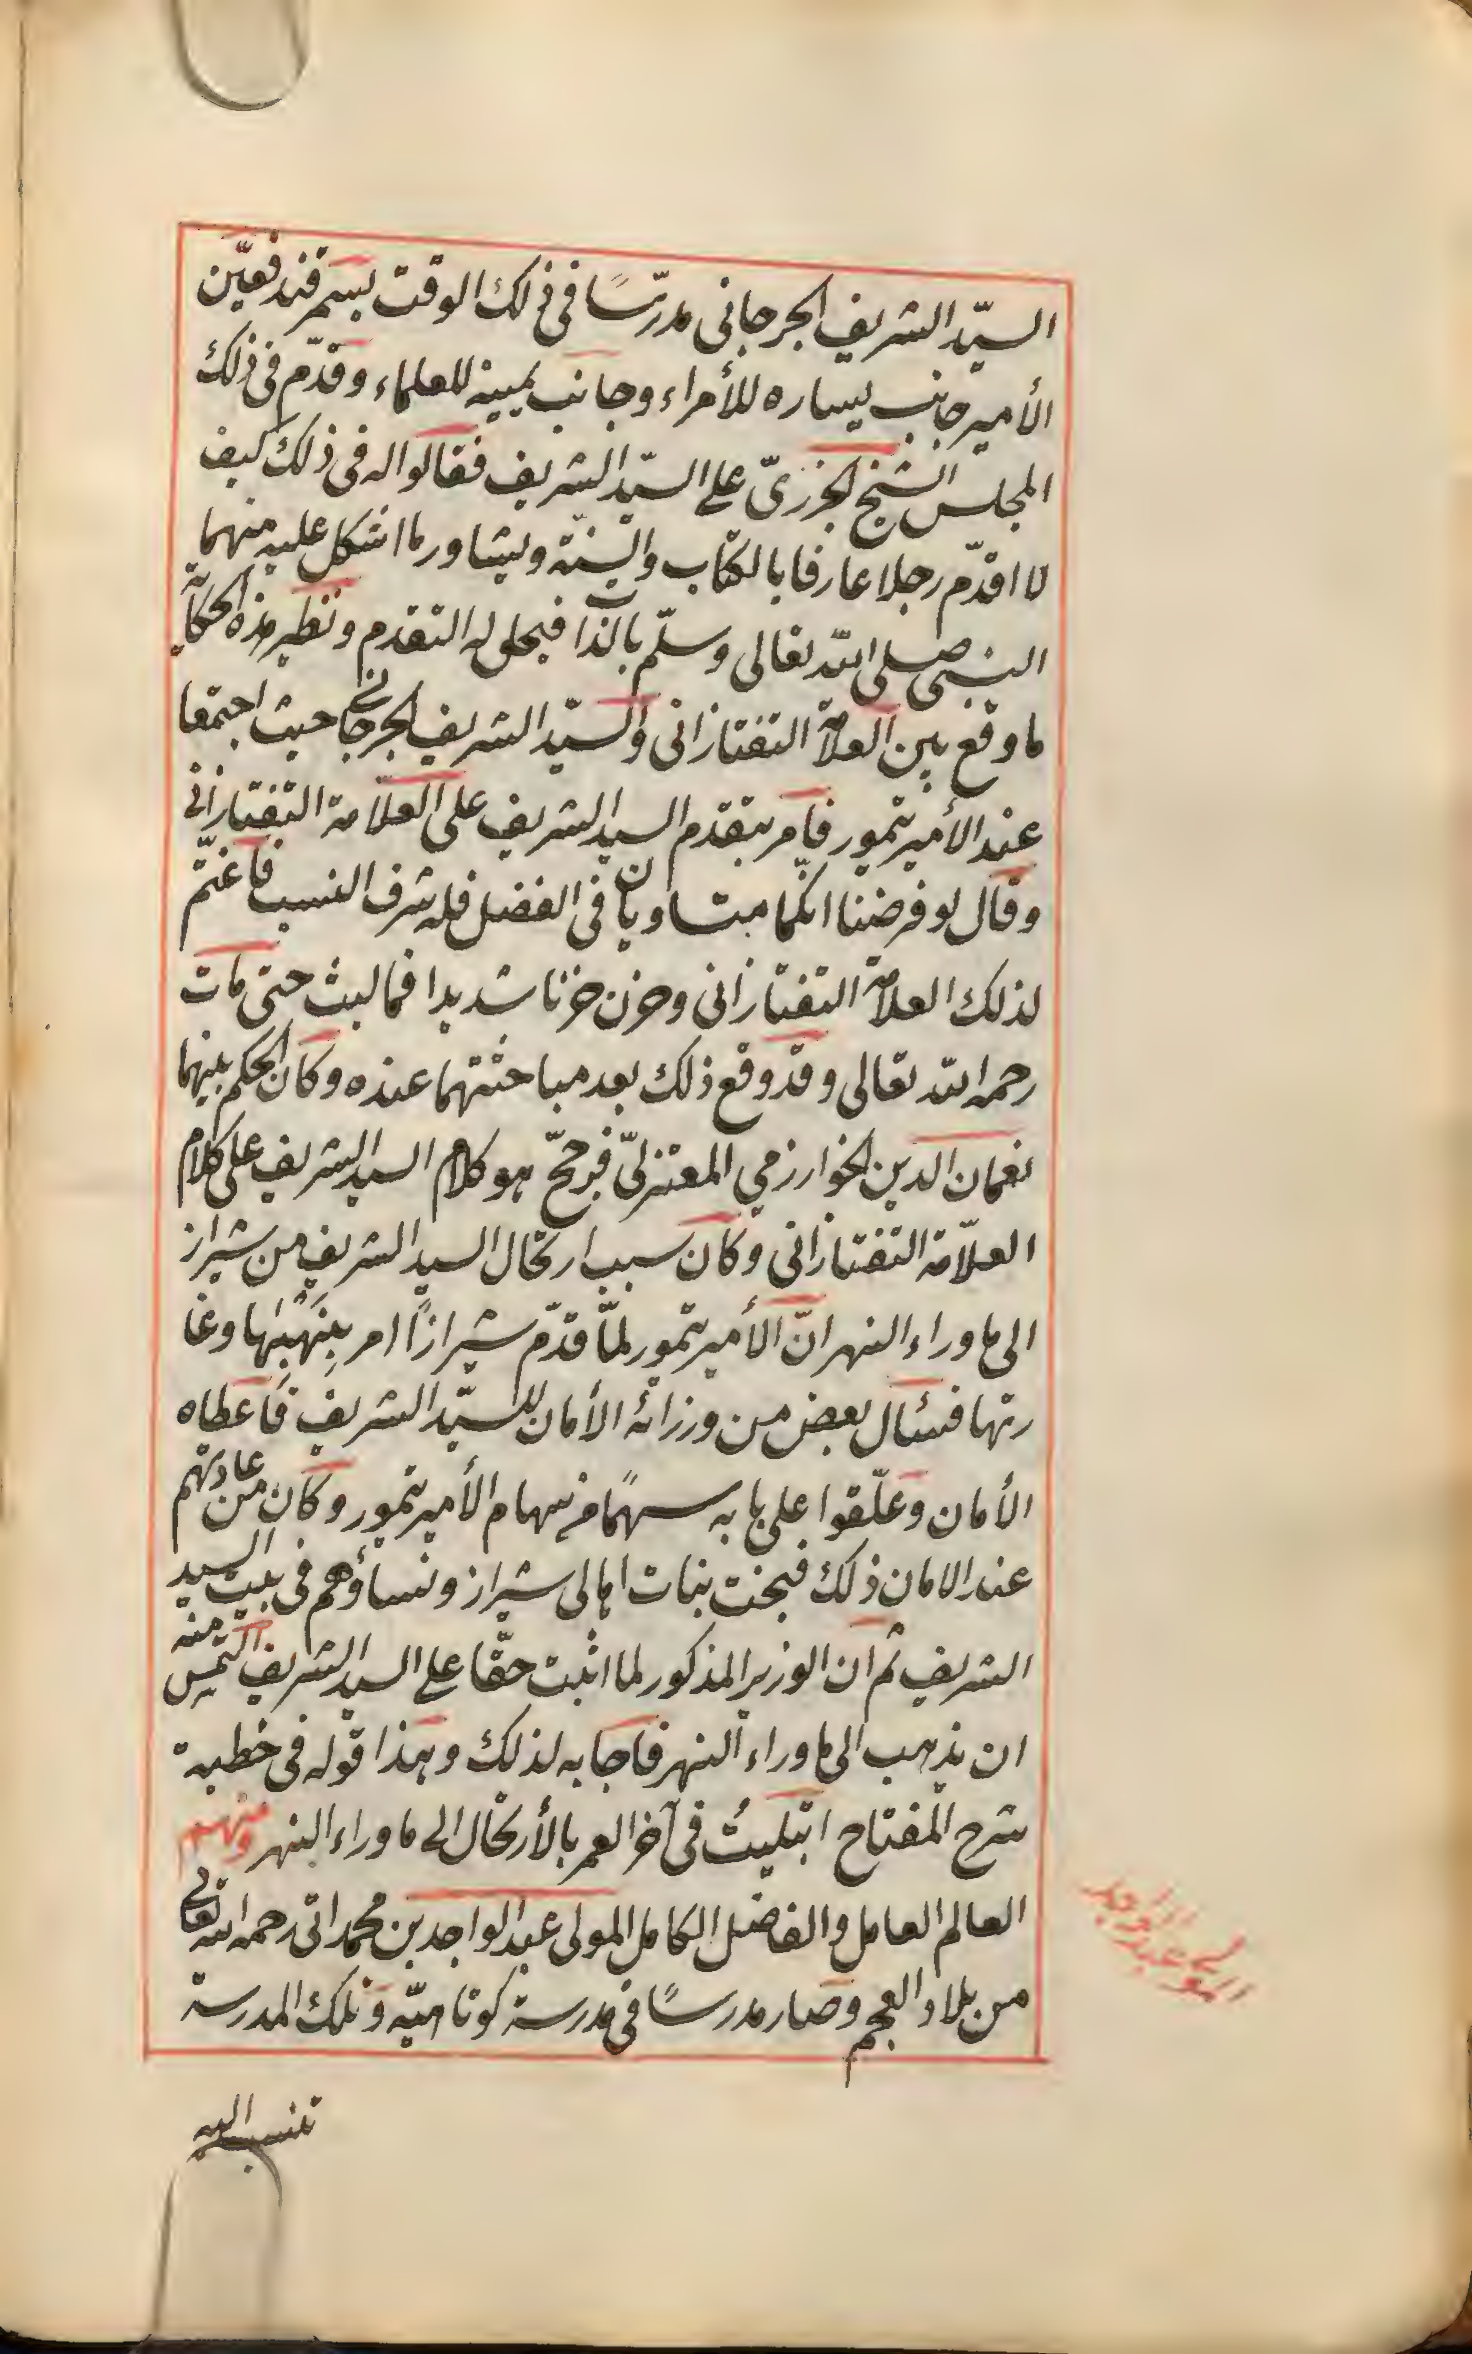 السيّد الشريف الجرجانى مدرّسًا فى ذلك الوقت بسمرقند فعيّن
الأمير جانب يساره للأمراء وجانب يمينه للعلماء وقدّم فى ذلك
المجلس الشيخ الجزرىّ على السيّد الشريف فقالوا له فى ذلك كيف
لا اقدّم رجلا عارفا بالكتاب والسنّة ويشاور ما اشكل عليه منهما
النبى صلى الله تعالى وسلّم بالذّات فيحلى له التقدم ونظير هذه الحكاية
ما وقع بين العلامّة التفتازانى والسيّد الشريف الجرجانى حيث اجتمعا
عند الأمير تيمور فأمر بتقدم السيد الشريف على العلّامة التفتازانى
وقال لو فرضنا انكّما متساويان فى الفضل فله شرف النسب فاغتمّ
لذلك العلامّة التفتازانى وحزن حزنا شديدا فما لبث حتى مات
رحمه الله تعالى وقد وقع ذلك بعد مباحثتهما عنده وكان الحكم بينهما
نعمان الدين الخوارزمي المعتزلىّ فرجّح هو كلام السيد الشريف على كلام
العلّامة التفتازانى وكان سبب ارتحال السيد الشريف من شيراز
الى ما وراء النهر انّ الأمير تيمور لمّا قدّم شيرازًا امر بنهبها وغا
رتها فسئال بعض من وزرائه الأمان للسيّد الشريف فاعطاه
الأمان وعلّقوا على بابه سهمًا من سهام الأمير تيمور وكان من عادتهم
عند الامان ذلك فبخت بنات اهالى شيراز ونساؤهم فى بيت السيد
الشريف ثم ان الوزير المذكور لما اثبت حقّا على السيد الشريف التمس منه
ان يذهب الى ما وراء النهر فاجابه لذلك وهذا قوله فى خطبة
شرح المفتاح ابتليتُ فى آخر العمر بالأرتحال الى ما وراء النهر ومنهم
العالم العامل والفاضل الكامل المولى عبد الواجد بن محمد اتى رحمه الله تعالى
من بلاد العجم وصار مدرسًا فى مدرسة كوتاهيّه وتلك المدرسة
المولى عبد الواجد
تنسب اليه